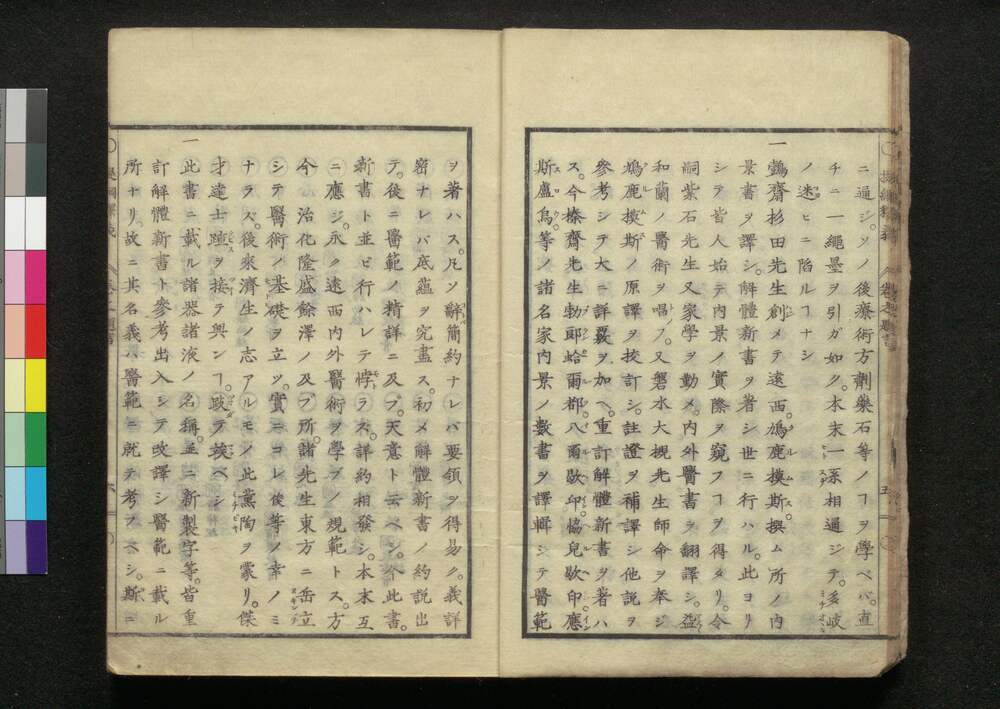 ニ通ジ。ソノ後療術方劑藥石等ノヿヲ學ベバ。直
チニ一繩墨ヲ引ガ如ク。本末一系相通ジテ。多岐
ノ迷ヒニ陷ルヿナシ
一鷧齋杉田先生創メテ遠西。鳩鹿摸斯。撰ム所ノ内
景書ヲ譯シ。解體新書ヲ著シ世ニ行ハル。此ヨリ
シテ皆人始テ内景ノ實際ヲ窺フヿヲ得タリ。令
嗣紫石先生又家學ヲ勤メ。内外醫書ヲ翻譯シ。益
和蘭ノ醫術ヲ唱フ。又磐水大槻先生師命ヲ奉ジ
鳩鹿摸斯ノ原譯ヲ挍訂シ。註證ヲ補譯シ他說ヲ
參考シテ大ニ詳覈ヲ加ヘ。重訂解體新書ヲ著ハ
ス。今榛齋先生勃郎蛤爾都。八爾歇印。協兒歇印。應
斯盧烏。等ノ諸名家内景ノ數書ヲ譯輯シテ醫範
ヲ著ハス。凡ソ辭簡約ナレバ要領ヲ得易ク。義詳
密ナレバ底蘊ヲ究盡ス。初メ解體新書ノ約説出
テ。後ニ醫範ノ精詳ニ及ブ。天意ト云ベシ。今此書。
新書ト並ビ行ハレテ悖ラズ。詳約相發シ。本末互
ニ應ジ。永ク遠西内外醫術ヲ學ブノ規範トス。方
今　治化隆盛餘澤ノ及ブ所。諸先生東方ニ岳立
シテ醫術ノ基礎ヲ立ツ。實ニコレ後等ノ幸ノミ
ナラズ。後來濟生ノ志アルモノ此薫陶ヲ蒙リ。傑
才達士踵ヲ接テ興ンヿ。跂テ竢ベシ
一此書ニ載ル諸器諸液ノ名稱。並ニ新製字等。皆重
訂解體新書ト參考出入シテ改譯シ醫範ニ載ル
所ナリ。故ニ其名義ハ醫範ニ就テ考フベシ。斯ニ